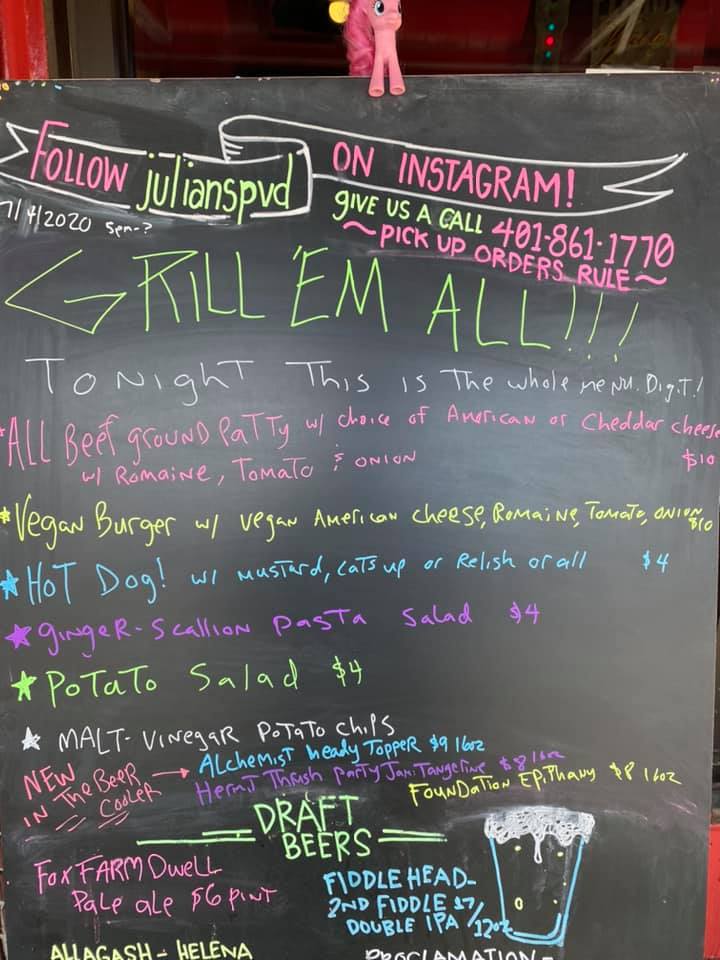 FOLLOW julianspvd
ON INSTAGRAM!
7/4/2020 5pm-?
gIVE US A CALL 401-861-1770
~PICK UP ORDERS RULE~
GRILL 'EM ALL!!!
TONighT This is The whole meNU. Dig.iT!
*ALL Beef gROUND PaTTy w/ choice of AmericaN or Cheddar cheese
w/ Romaine, Tomato & ONION $10
*Vegan Burger w/ vegan American cheese, Romaine, Tomato, ONION $10
★HOT Dog! w/ mustard, catsup or Relish or all $4
★gingeR-Scallion pasTa Salad $4
★PoTaTo Salad $4
★ MALT-VINEgaR PoTaTo chips
NEW IN The BeeR Cooler → ALchemist heady Topper $9 16oz
Hermit Thrush Party Jam: Tangerine $8 16oz
FounDaTion EpiThany $8 16oz
DRAFT
BEERS
FoxFARM Dwell
Pale ale $6 pint
FIDDLEHEAD-
2ND FIDDLE $7/
DOUBLE IPA /12oz
ALLAGASH - HELENA
PROCLAMATION -